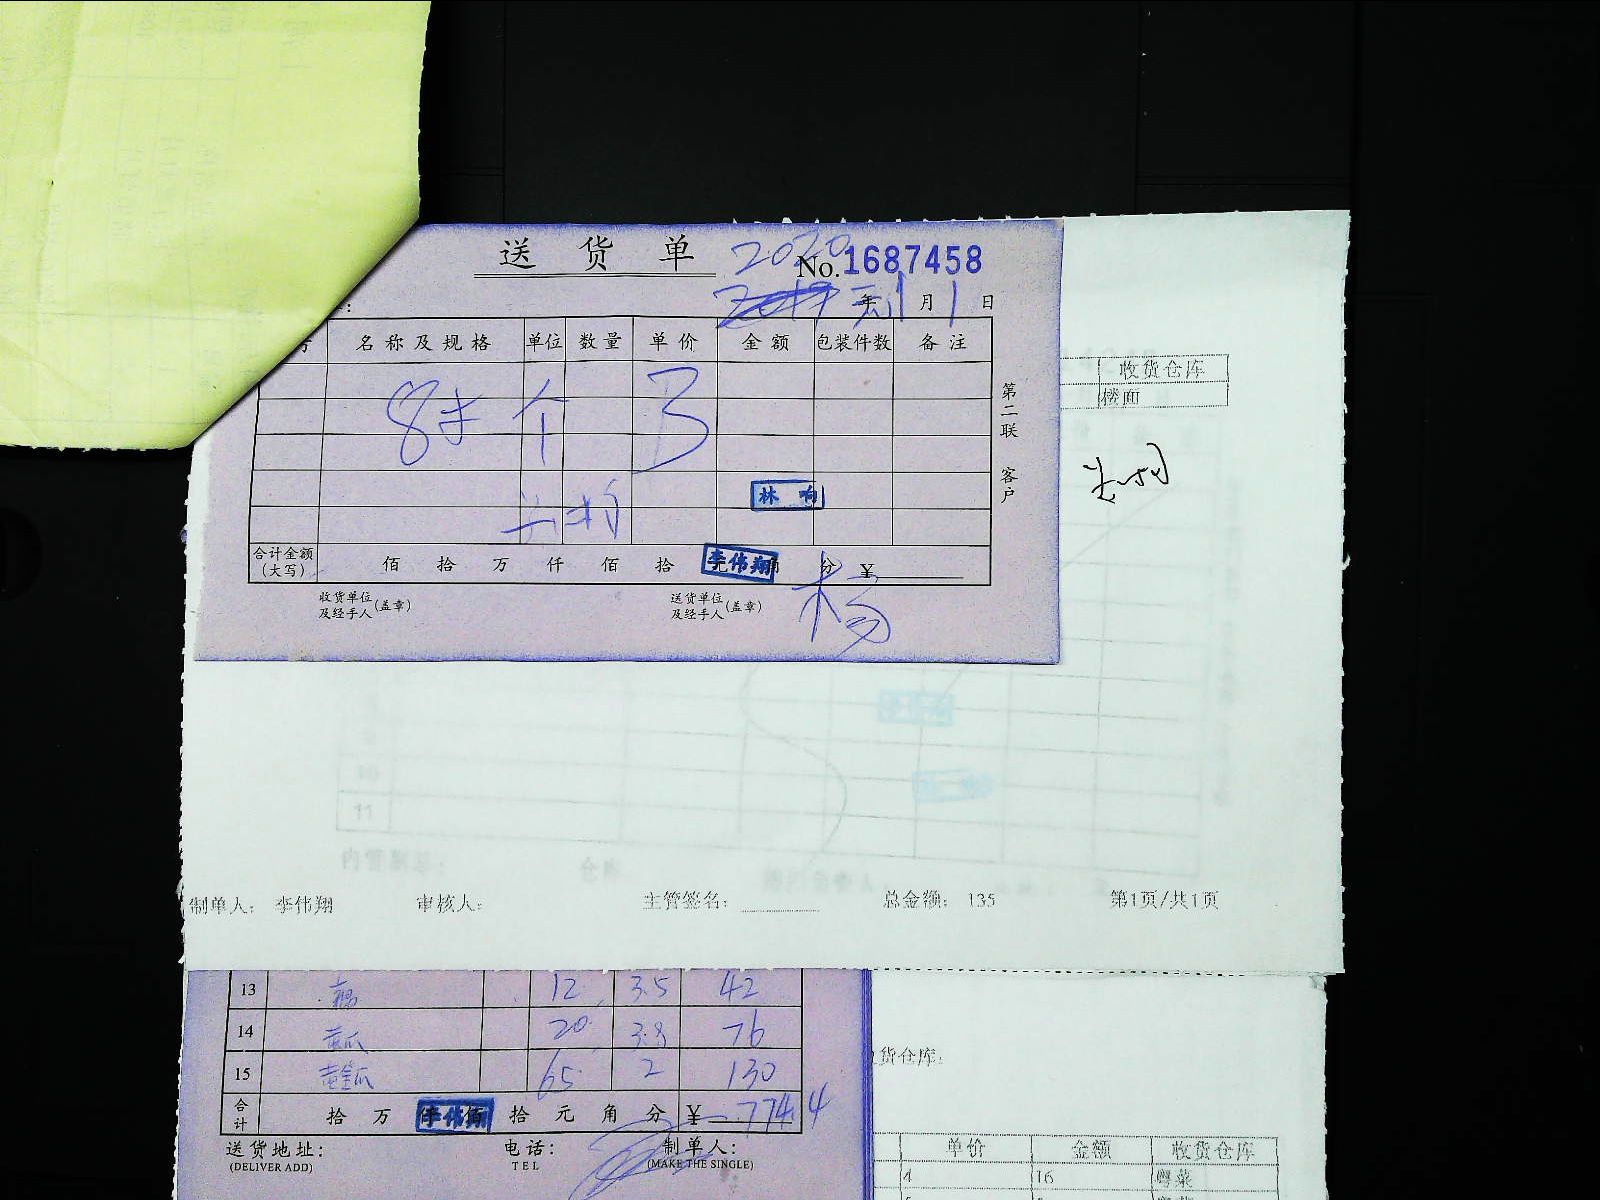 送 货 单
2020
No.1687458
2019 年 1 月 1 日
名称及规格 单位 数量 单价 金额 包装件数 备注
8寸 个 3
林 响
合计金额(大写) 佰 拾 万 仟 佰 拾 分 ¥
李伟翔
杨
收货单位及经手人(盖章) 送货单位及经手人(盖章)
第二联 客户
收货仓库
楼面
10
11
制单人: 李伟翔 审核人: 主管签名: 总金额: 135 第1页/共1页
13 12 3.5 42
14 黄瓜 20 3.8 76
15 黄金瓜 65 2 130
合计 拾 万 仟 佰 拾 元 角 分 ¥ 774.4
李伟翔
送货地址: 电话: 制单人:
(DELIVER ADD) TEL (MAKE THE SINGLE)
货仓库:
单价 金额 收货仓库
4 16 粤菜